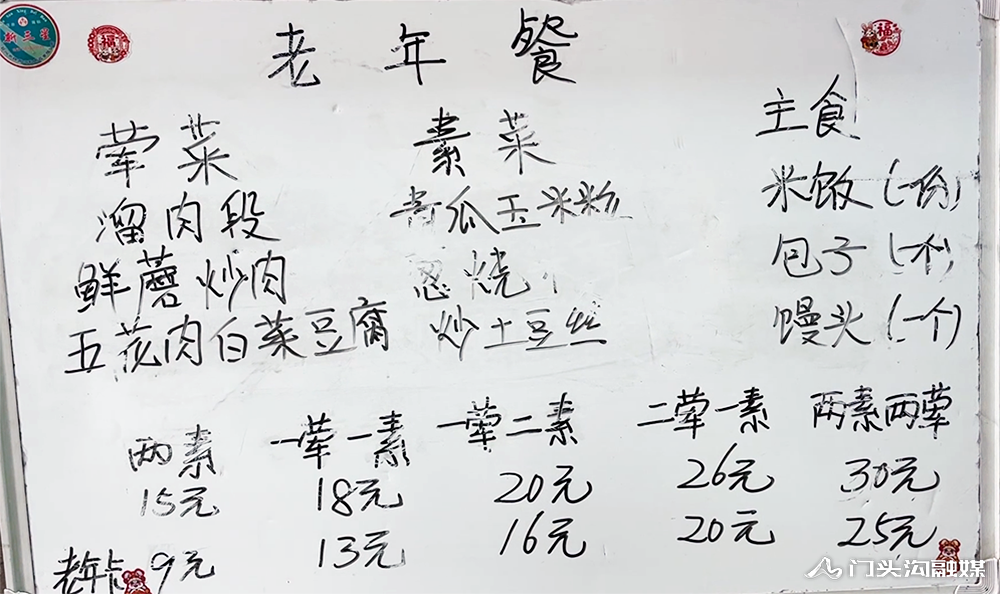 新三星
福
福
老年餐
荤菜 素菜 主食
溜肉段 青瓜玉米粉 米饭(一份)
鲜蘑炒肉 葱烧 包子(一个)
五花肉白菜豆腐 炒土豆丝 馒头(一个)
两素 一荤一素 一荤二素 二荤一素 两素两荤
15元 18元 20元 26元 30元
老年卡 9元 13元 16元 20元 25元
门头沟融媒